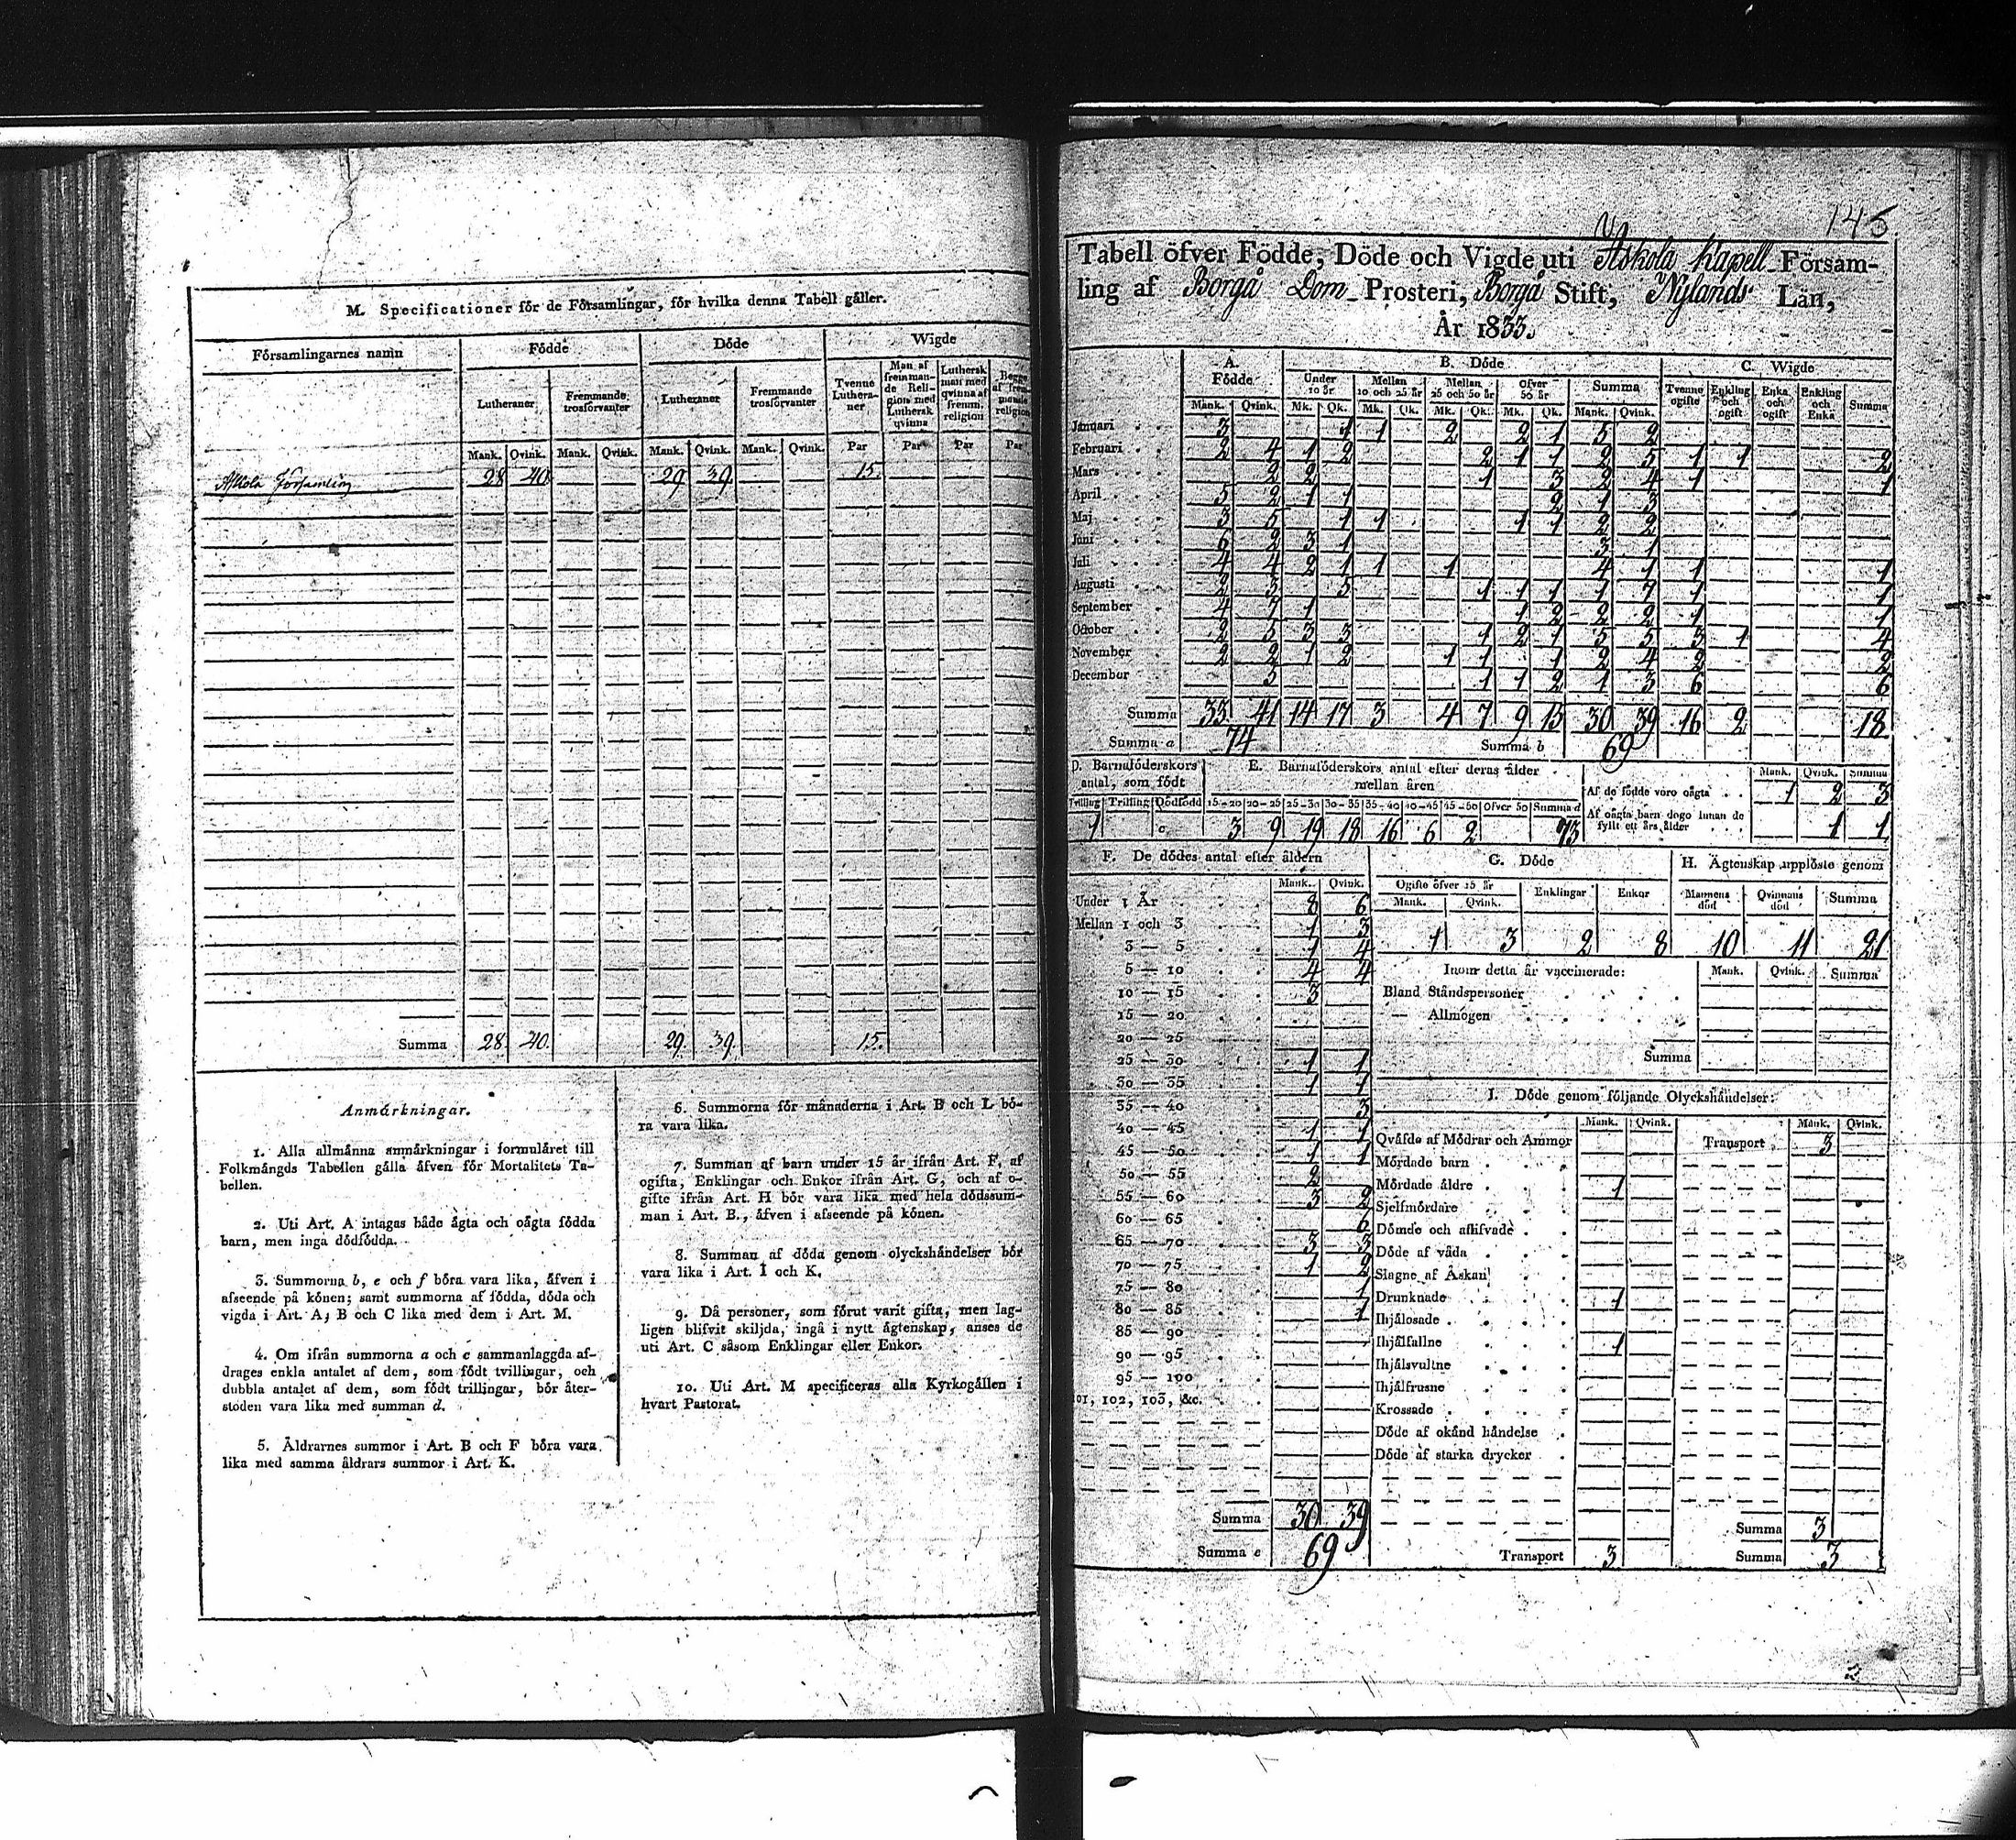 M. Specificationer för de Församlingar, för hvilka denna Tabell gäller.
Församlingarnes namn | Födde | Döde | Wigde
Lutheraner | Fremmande trosförvanter | Lutheraner | Fremmande trosförvanter | Tvenne Lutheraner | Man af fremmande Religion med Luthersk qvinna | Luthersk man med qvinna af fremm. religion | Begge af fremmande religion
Mank. | Qvink. | Mank. | Qvink. | Mank. | Qvink. | Mank. | Qvink. | Par | Par | Par | Par
Askola Församling | 28 | 40 | 29 | 39 | 15
Summa | 28 | 40 | 29 | 39 | 15
Anmärkningar.
1. Alla allmänna anmärkningar i formuläret till
Folkmängds Tabellen gälla äfven för Mortalitets Ta-
bellen.
2. Uti Art. A intagas både ägta och oägta födda
barn, men inga dödfödda.
3. Summorna b, e och f böra vara lika, äfven i
afseende på könen; samt summorna af födda, döda och
vigda i Art. A, B och C lika med dem i Art. M.
4. Om ifrån summorna a och c sammanlaggda af-
drages enkla antalet af dem, som födt tvillingar, och
dubbla antalet af dem, som födt trillingar, bör åter-
stoden vara lika med summan d.
5. Åldrarnes summor i Art. B och F böra vara
lika med samma åldrars summor i Art. K.
6. Summorna för månaderna i Art. B och L bö-
ra vara lika.
7. Summan af barn under 15 år ifrån Art. F, af
ogifta, Enklingar och Enkor ifrån Art. G, och af o-
gifte ifrån Art. H bör vara lika med hela dödssum-
man i Art. B., äfven i afseende på könen.
8. Summan af döda genom olyckshändelser bör
vara lika i Art. I och K.
9. Då personer, som förut varit gifta, men lag-
ligen blifvit skiljda, ingå i nytt ägtenskap, anses de
uti Art. C såsom Enklingar eller Enkor.
10. Uti Art. M specificeras alla Kyrkogällen i
hvart Pastorat.
145
Tabell öfver Födde, Döde och Vigde uti Askola Kapell Försam-
ling af Borgå Dom Prosteri, Borgå Stift, Nylands Län,
År 1833.
A. Födde | B. Döde | C. Wigde
Under 10 år | Mellan 10 och 25 år | Mellan 25 och 50 år | Öfver 50 år | Summa | Tvenne ogifte | Enkling och ogift | Enka och ogift | Enkling och Enka | Summa
Mank. | Qvink. | Mk. | Qk. | Mk. | Qk. | Mk. | Qk. | Mk. | Qk. | Mank. | Qvink.
Januari | 3 | 1 | 1 | 2 | 2 | 1 | 5 | 2
Februari | 2 | 4 | 1 | 2 | 2 | 1 | 1 | 2 | 5 | 1 | 1 | 2
Mars | 2 | 2 | 1 | 3 | 2 | 4 | 1 | 1
April | 5 | 2 | 1 | 1 | 2 | 1 | 3
Maj | 3 | 5 | 1 | 1 | 1 | 1 | 2 | 2
Juni | 6 | 2 | 3 | 1 | 3 | 1
Juli | 4 | 4 | 2 | 1 | 1 | 1 | 4 | 1 | 1 | 1
Augusti | 2 | 3 | 5 | 1 | 1 | 1 | 1 | 7 | 1 | 1
September | 4 | 7 | 1 | 1 | 2 | 2 | 2 | 1 | 1
October | 2 | 5 | 3 | 3 | 1 | 2 | 1 | 5 | 5 | 3 | 1 | 4
November | 2 | 2 | 1 | 2 | 1 | 1 | 1 | 2 | 4 | 2 | 2
December | 5 | 1 | 1 | 2 | 1 | 3 | 6 | 6
Summa | 33 | 41 | 14 | 17 | 3 | 4 | 7 | 9 | 15 | 30 | 39 | 16 | 2 | 18
Summa a | 74 | Summa b | 69
D. Barnaföderskors antal, som födt | E. Barnaföderskors antal efter deras ålder mellan åren | Mank. | Qvink. | Summa
Tvilling | Trilling | Dödfödd | 15-20 | 20-25 | 25-30 | 30-35 | 35-40 | 40-45 | 45-50 | Öfver 50 | Summa d
1 | c | 3 | 9 | 19 | 18 | 16 | 6 | 2 | 73
Af de födde voro oägta | 1 | 2 | 3
Af oägta barn dogo innan de fyllt ett års ålder | 1 | 1
F. De dödes antal efter åldern
Mank. | Qvink.
Under 1 År | 8 | 6
Mellan 1 och 3 | 1 | 3
3 — 5 | 1 | 4
5 — 10 | 4 | 4
10 — 15 | 3
15 — 20
20 — 25
25 — 30 | 1 | 1
30 — 35 | 1 | 1
35 — 40 | 3
40 — 45 | 1 | 1
45 — 50 | 1 | 1
50 — 55 | 2
55 — 60 | 3 | 2
60 — 65 | 6
65 — 70 | 3 | 3
70 — 75 | 1 | 2
75 — 80 | 1
80 — 85 | 1
85 — 90
90 — 95
95 — 100
101, 102, 103, &c.
Summa | 30 | 39
Summa e | 69
G. Döde | H. Ägtenskap upplöste genom
Ogifte öfver 15 år | Enklingar | Enkor | Mannens död | Qvinnans död | Summa
Mank. | Qvink.
1 | 3 | 2 | 8 | 10 | 11 | 21
Inom detta år vaccinerade: | Mank. | Qvink. | Summa
Bland Ståndspersoner
— Allmogen
Summa
I. Döde genom följande Olyckshändelser:
Mank. | Qvink. | Mank. | Qvink.
Qväfde af Mödrar och Ammor | Transport | 3
Mördade barn
Mördade äldre | 1
Sjelfmördare
Dömde och aflifvade
Döde af våda
Slagne af Åskan
Drunknade | 1
Ihjälosade
Ihjälfallne | 1
Ihjälsvultne
Ihjälfrusne
Krossade
Döde af okänd händelse
Döde af starka drycker
Summa | 3
Transport | 3 | Summa | 3